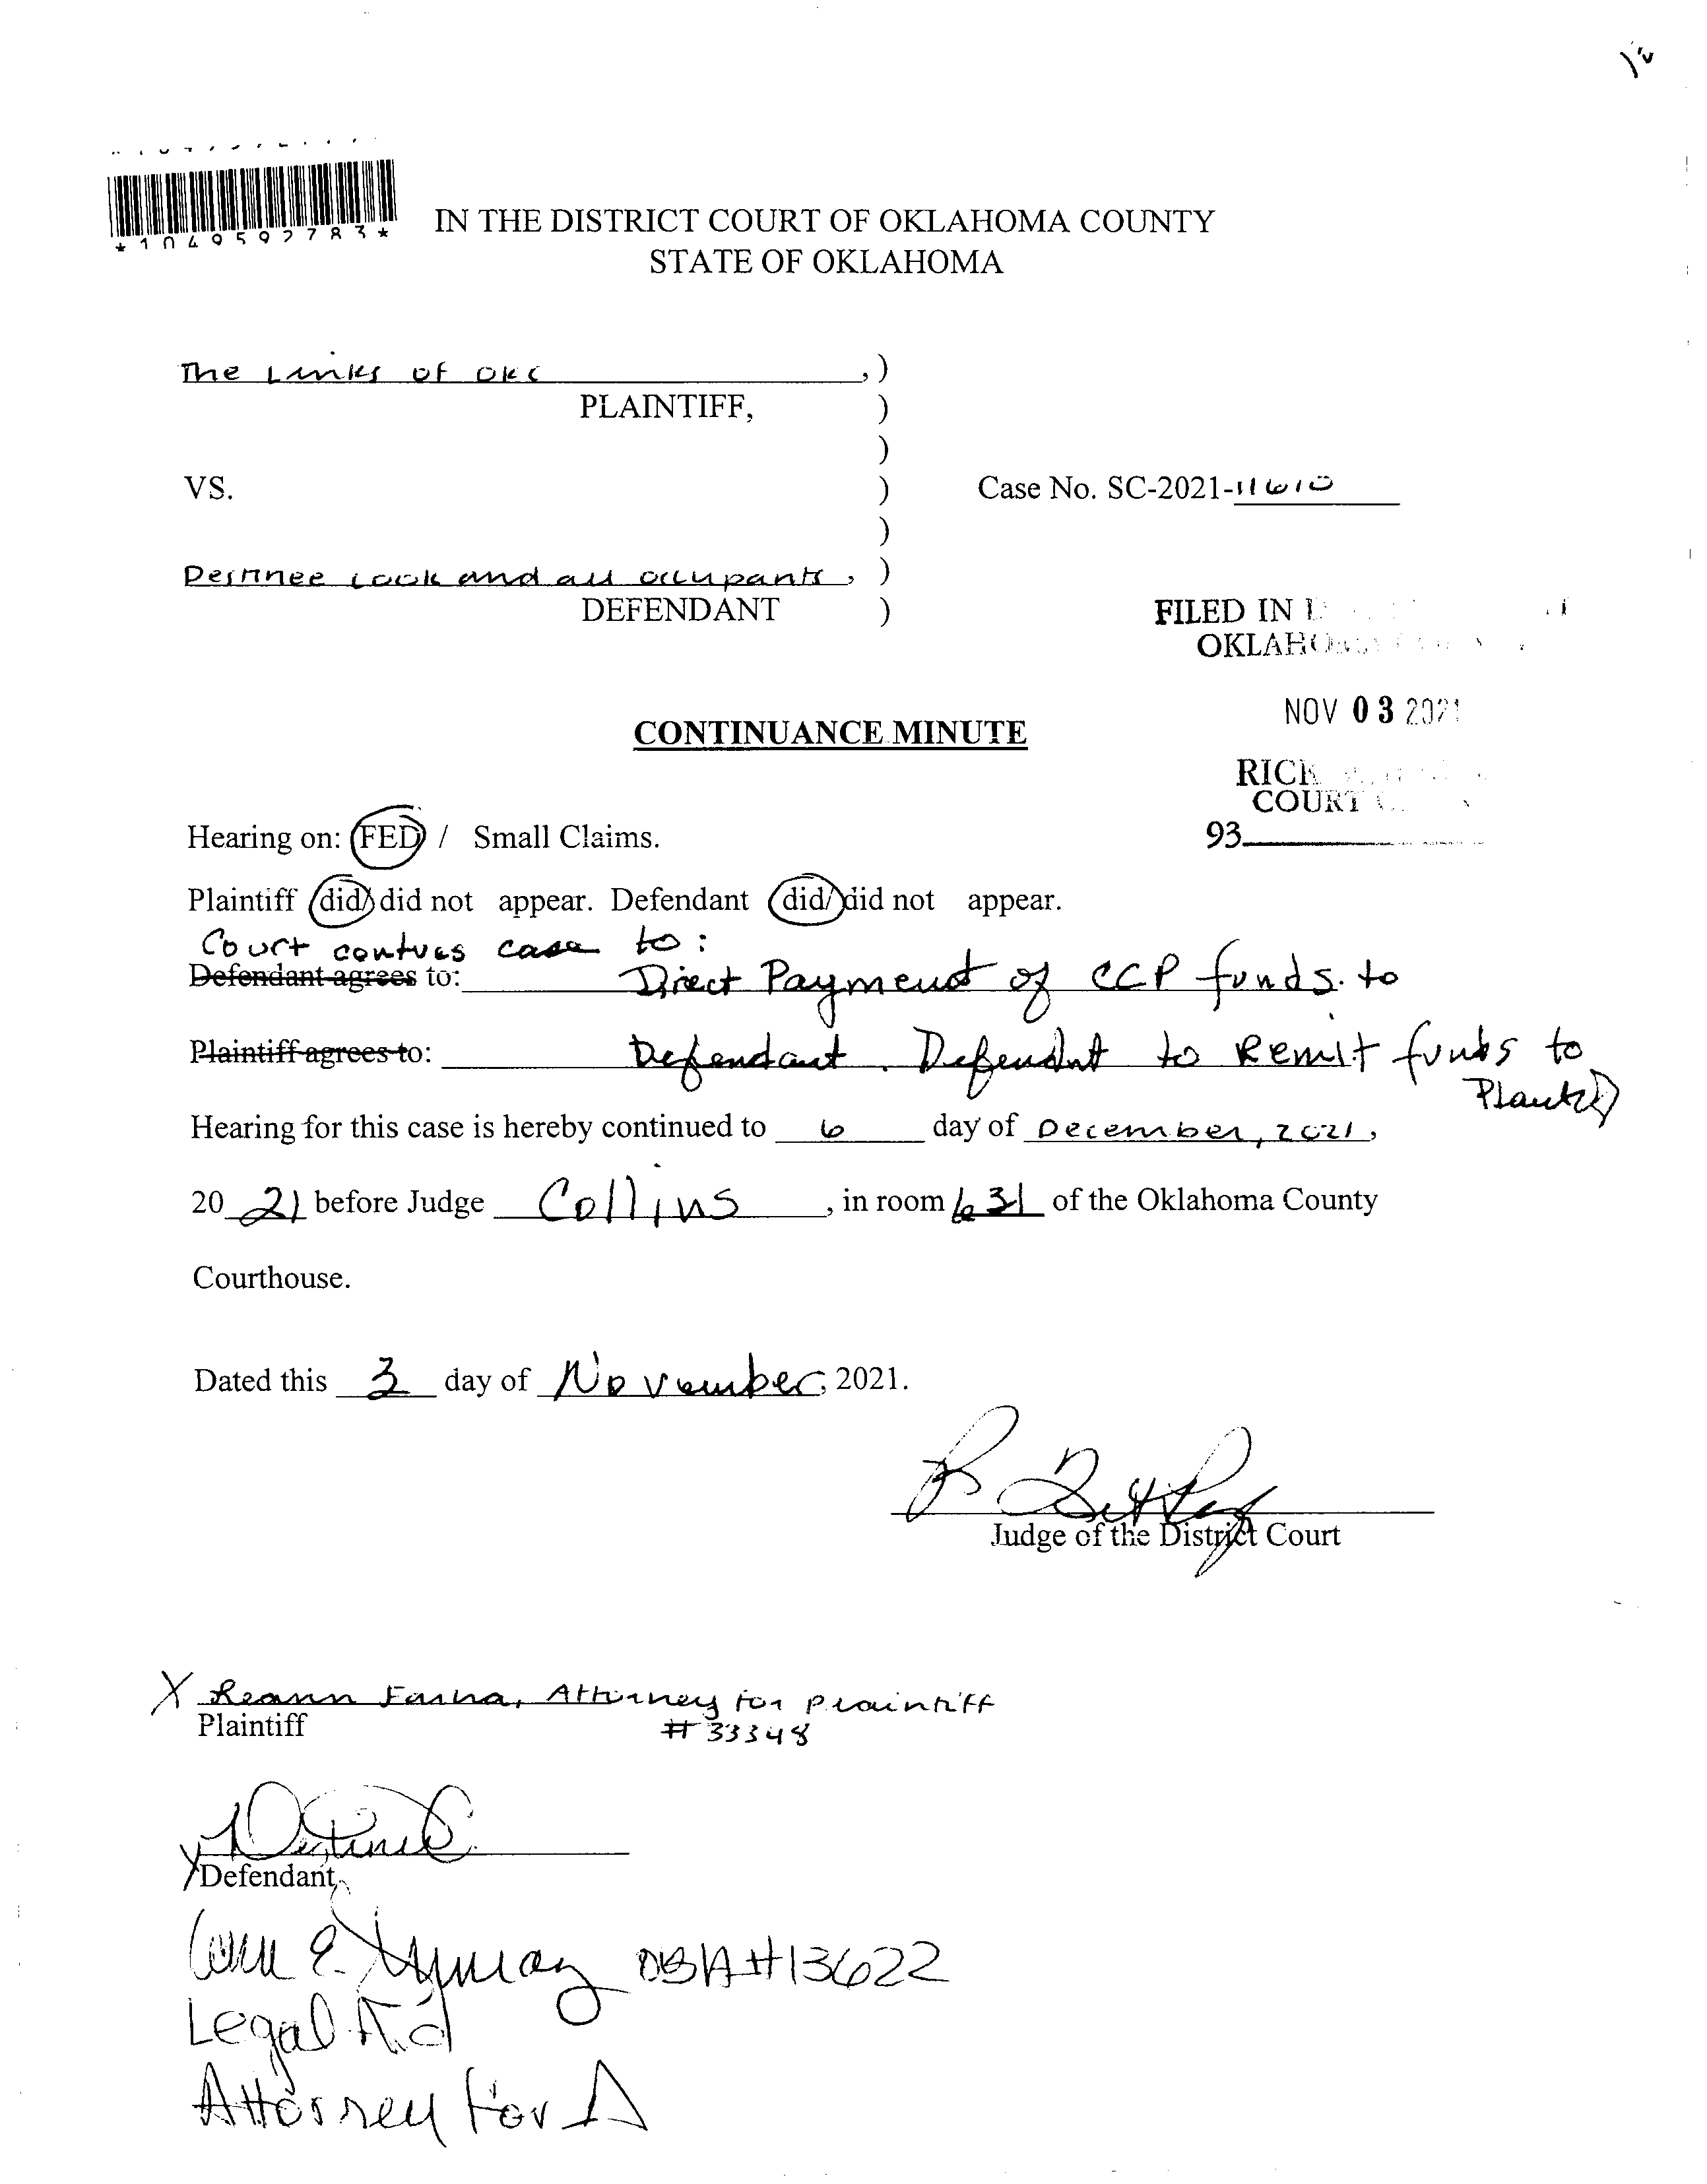 *1049592783*
IN THE DISTRICT COURT OF OKLAHOMA COUNTY
STATE OF OKLAHOMA
The Links of OKC , )
PLAINTIFF, )
)
VS. ) Case No. SC-2021-11610
)
Destinee Cook and all occupants , )
DEFENDANT )
FILED IN
OKLAHOMA
CONTINUANCE MINUTE
NOV 03 2021
RICK
COURT
93
Hearing on: FED / Small Claims.
Plaintiff did/ did not appear. Defendant did/ did not appear.
Court contues case to:
Defendant agrees to: Direct Payment of CCP funds. to
Plaintiff agrees to: Defendant. Defendant to Remit funds to
Plaintiff
Hearing for this case is hereby continued to 6 day of December, 2021,
20 21 before Judge Collins, in room 631 of the Oklahoma County
Courthouse.
Dated this 3 day of November, 2021.
Judge of the District Court
X Reann , Attorney for plaintiff
Plaintiff #33348
Defendant
OBA#13622
Legal Aid
Attorney for Δ